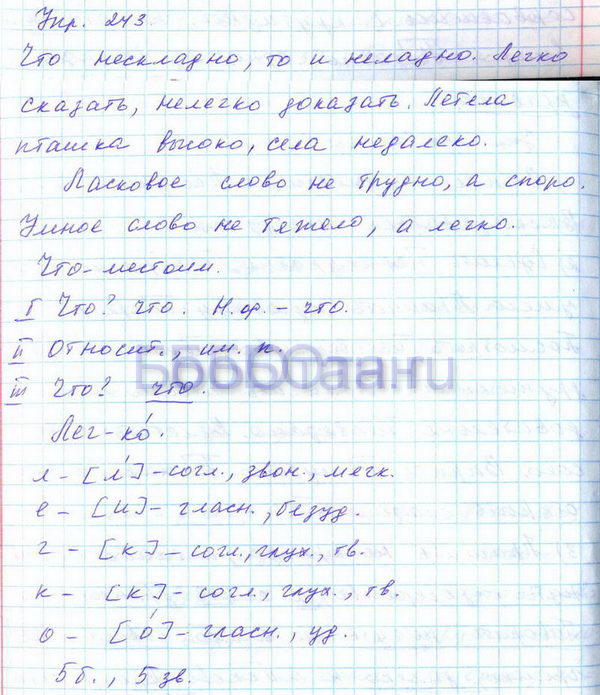 Упр. 243
Что нескладно, то и неладно. Легко
сказать, нелегко доказать. Летела
пташка высоко, села недалеко.
Ласковое слово не трудно, а споро.
Умное слово не тяжело, а легко.
Что - местоим.
I Что? что. Н.ф. - что.
II Относит., им. п.
III Что? что.
Лег-ко́.
л - [л'] - согл., звон., мягк.
е - [и] - гласн., безуд.
г - [к] - согл., глух., тв.
к - [к] - согл., глух., тв.
о - [о́] - гласн., уд.
5 б., 5 зв.